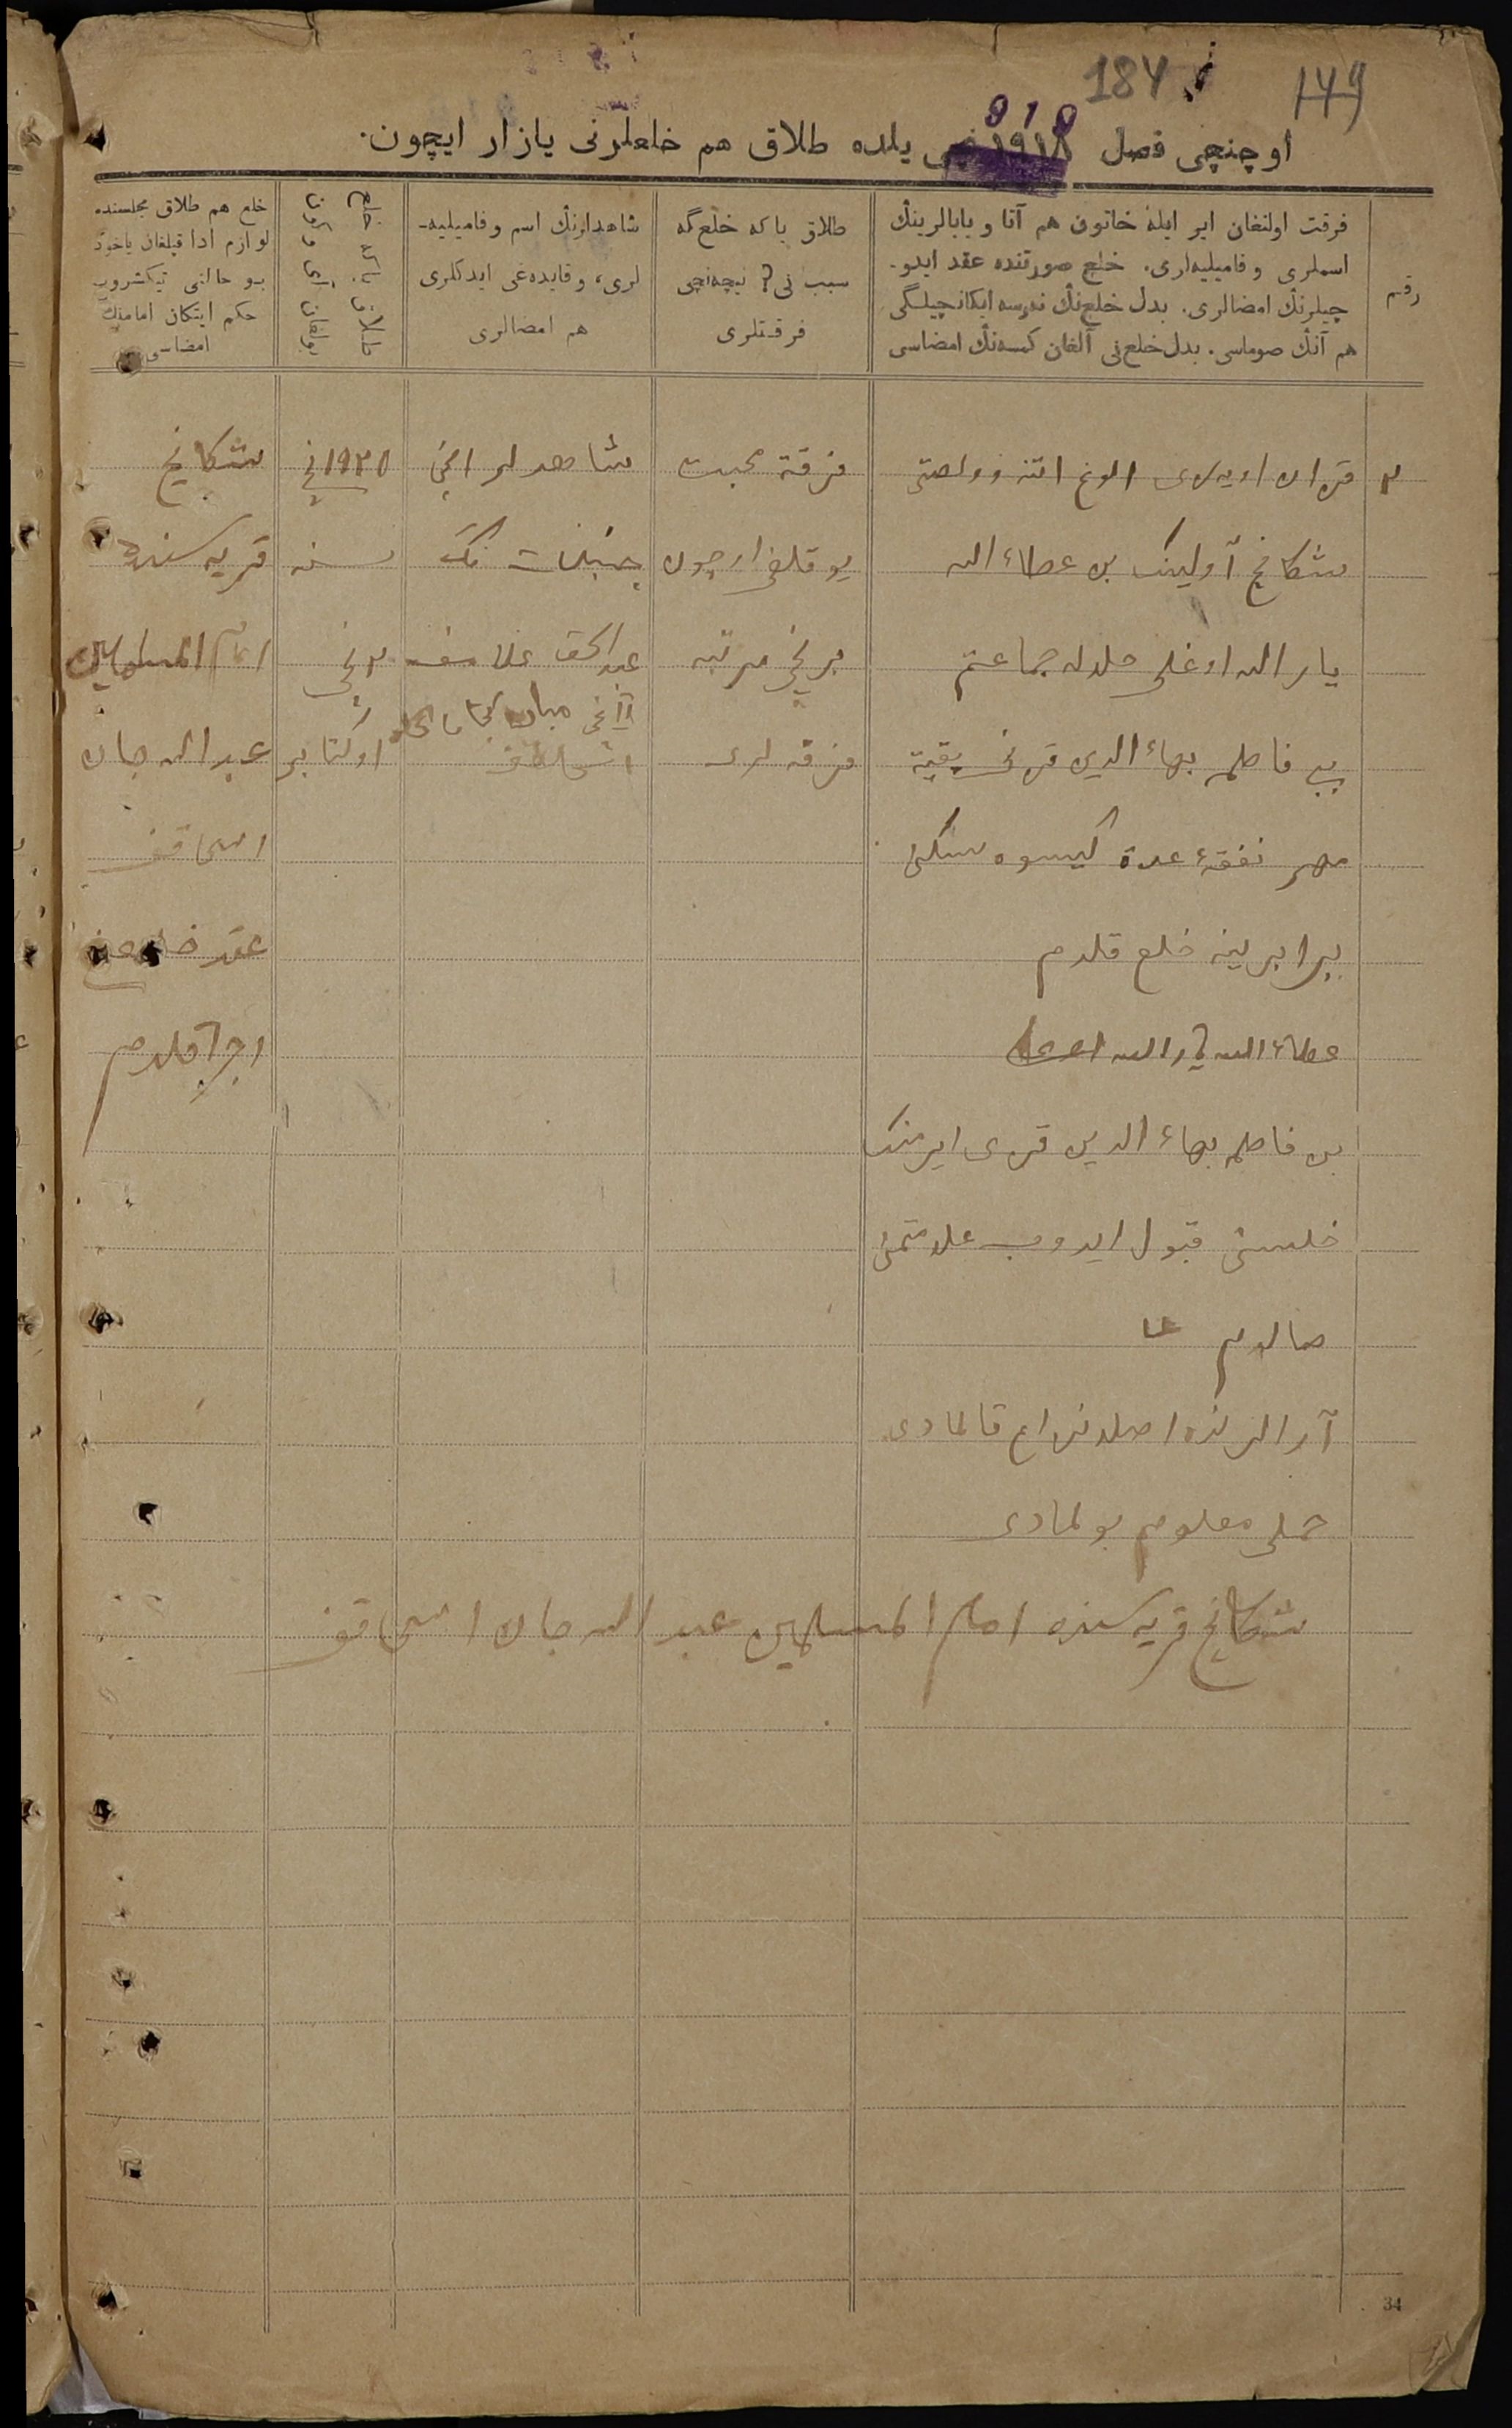 184
149
918
اوچنچی فصل ۱۹۱۸نچی یلده طلاق هم خلعلرنی یازار ایچون.
رقم
فرقت اولنغان ایر ایله خاتونی هم آتا و بابالرینڭ
اسملری و فامیلیه‌لری. خلع صورتنده عقد ایدو-
چیلرنڭ امضالری. بدل خلع‌نڭ نەرسه ایکانچیلگی،
هم آنڭ صوماسی. بدل خلع‌نی آلغان کمسه‌نڭ امضاسی
طلاق یاکه خلع گه
سبب نی؟ نیچه‌نچی
فرقتلری
شاهدلرنڭ اسم و فامیلیه-
لری، و قایده‌غی ایدکلری
هم امضالری
خلع هم طلاق مجلسنده
لوازم ادا قیلغان یاخود
بو حالنی تیکشروب
حکم ایتکان امامنڭ
امضاسی
۲
قزان اویه‌زی الوغ اتنه وولصتی
شکانخ آولینک بن عطاء الله
یار الله اوغلی حلاله جماعتم
بی فاطمه بهاء الدین قزنی بقیة
مهر نفقۀ عدة کیسوه سکنی
برابرینه خلع قلدم
عطاء الله یار الله
بن فاطمه بهاء الدین قزی ایرمنک
خلعنی قبول ایدوب علامتمنی
صالدم
آرالرنده اصلا نزاع قالمادی.
حملی معلوم بولمادی
فرقة محبت
یوقلغی اوچون
برنچی مرتبه
فرقه لری
شاهدلر
عبدالحق
۱۹۲۵نچی
سنه
۲نچی
اوکتابر
شکانخ
قریه سنده
امام المسلمین
عبد الله جان
اسحاقف
عقد خلع‌نی
اجرا قلدم
شکانخ قریه سنده امام المسلمین عبد الله جان اسحاقف
34